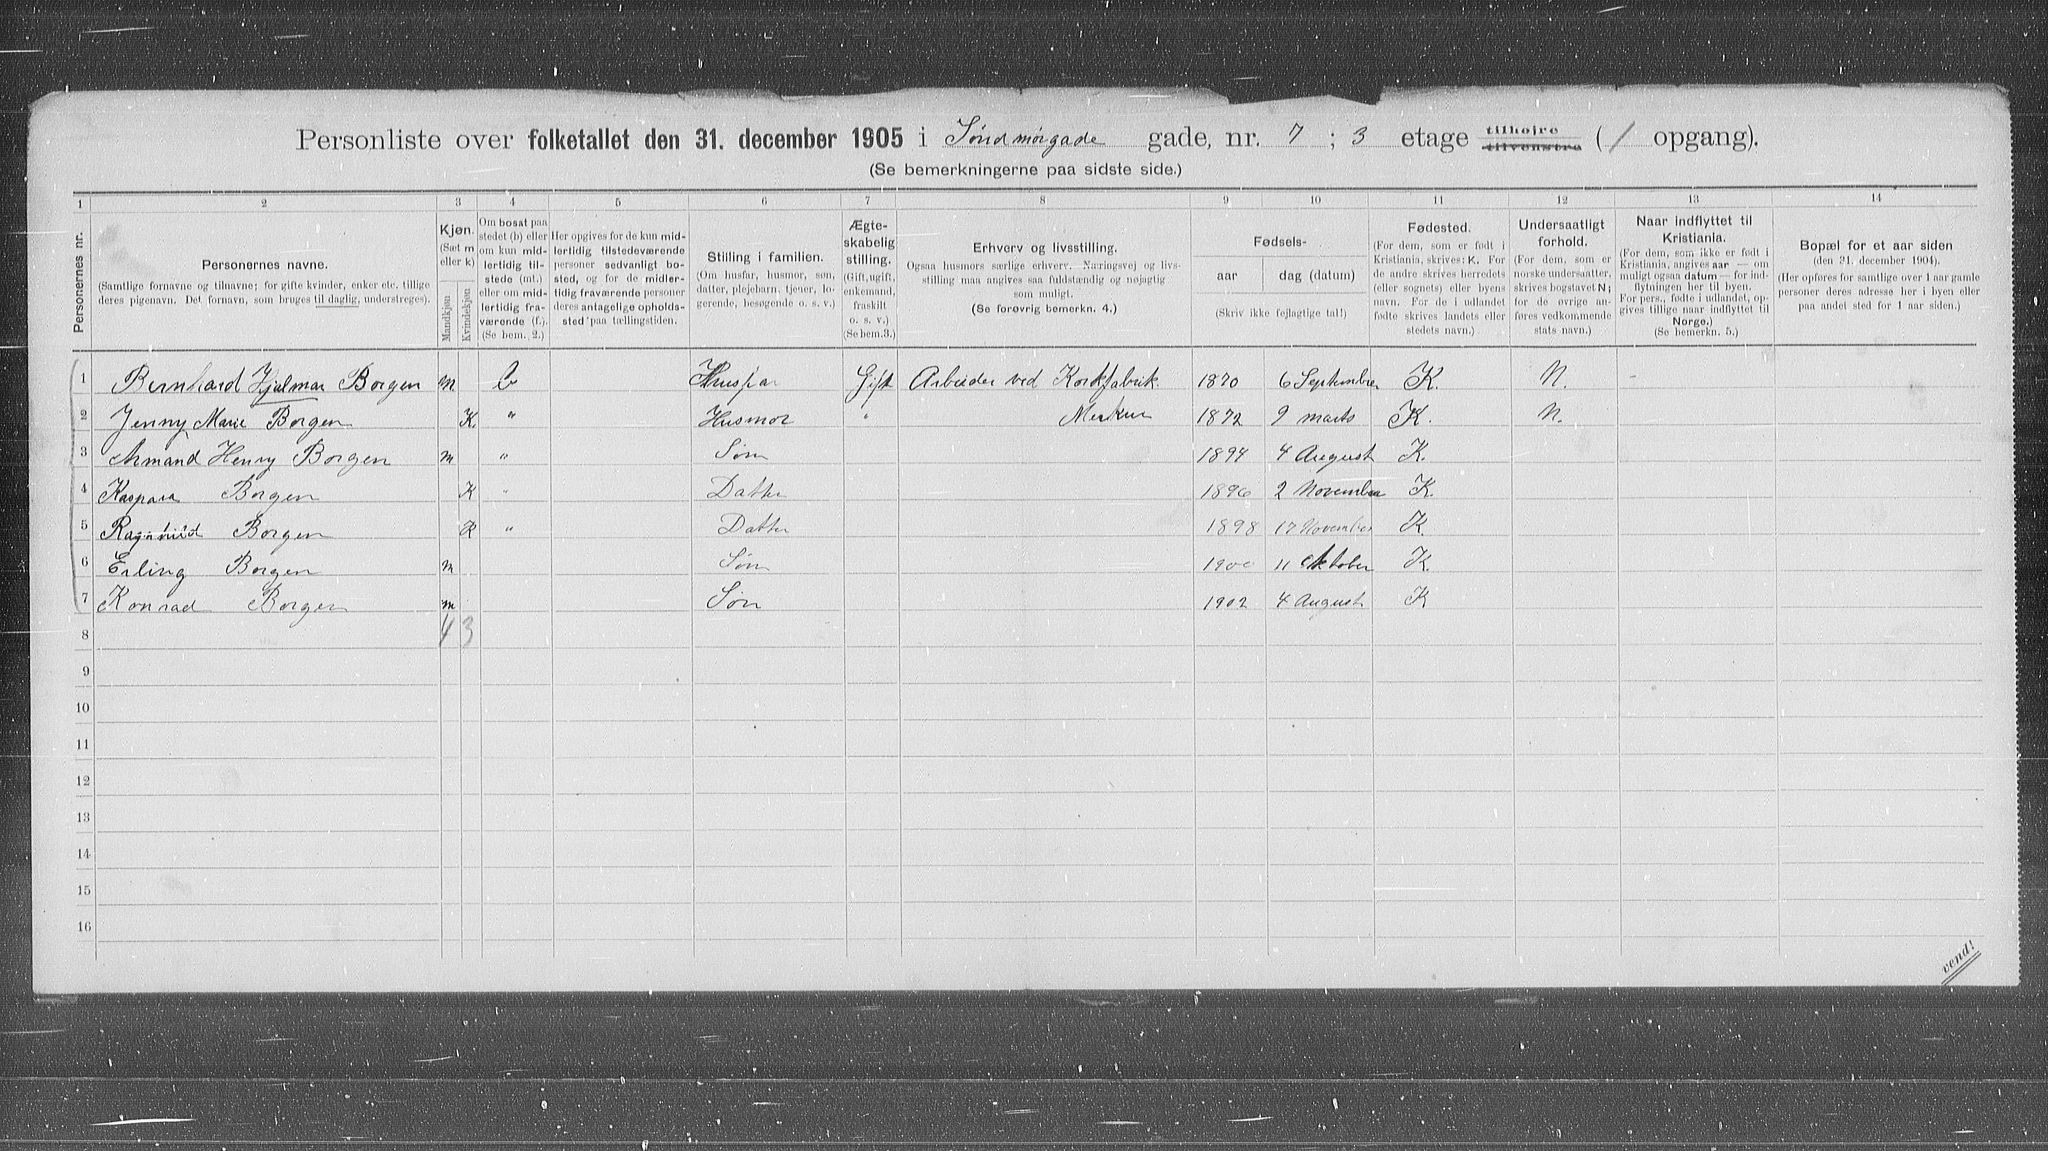 Personliste over folketallet den 31. december 1905 i Søndmørgade gade, nr. 7 ; 3 etage tilhøjre tilvenstre ( / opgang).
(Se bemerkningerne paa sidste side.)
1 2 3 4 5 6 7 8 9 10 11 12 13 14
Personernes nr.
Personernes navne.
(Samtlige fornavne og tilnavne; for gifte kvinder, enker etc. tillige
deres pigenavn. Det fornavn, som bruges til daglig, understreges).
Kjøn.
(Sæt m
eller k)
Mandkjøn
Kvindekjøn
Om bosat paa
stedet (b) eller
om kun mid-
lertidig til-
stede (mt.)
eller om mid-
lertidig fra-
værende (f.).
(Se bem. 2.)
Her opgives for de kun mid-
lertidig tilstedeværende
personer sedvanligt bo-
sted, og for de midler-
tidig fraværende personer
deres antagelige opholds-
sted paa tællingstiden.
Stilling i familien.
(Om husfar, husmor, søn,
datter, plejebarn, tjener, lo-
gerende, besøgende o. s. v.)
Ægte-
skabelig
stilling.
(Gift, ugift,
enkemand,
fraskilt
o. s. v.)
(Se bem. 3.)
Erhverv og livsstilling.
Ogsaa husmors særlige erhverv. Næringsvej og livs-
stilling maa angives saa fuldstændig og nøjagtig
som muligt.
(Se forøvrig bemerkn. 4.)
Fødsels-
aar dag (datum)
(Skriv ikke fejlagtige tal!)
Fødested.
(For dem, som er født i
Kristiania, skrives: K. For
de andre skrives herredets
(eller sognets) eller byens
navn. For de i udlandet
fødte skrives landets eller
stedets navn.)
Undersaatligt
forhold.
(For dem, som er
norske undersaatter,
skrives bogstavet N;
for de øvrige an-
føres vedkommende
stats navn.)
Naar indflyttet til
Kristiania.
(For dem, som ikke er født i
Kristiania, angives aar — om
muligt ogsaa datum — for ind-
flytningen her til byen.
For pers., fødte i udlandet, op-
gives tillige naar indflyttet til
Norge.)
(Se bemerkn. 5.)
Bopæl for et aar siden
(den 31. december 1904).
(Her opføres for samtlige over 1 aar gamle
personer deres adresse her i byen eller
paa andet sted for 1 aar siden.)
1 Bernhard Hjalmar Borgen m b Husfar Gift Arbeider ved Korkfabrik 1870 6 September K. N.
2 Jenny Marie Borgen K. " Husmor " Merkur 1872 9 marts K. N.
3 Armand Henry Borgen m " Søn 1894 4 August K.
4 Kaspara Borgen K " Datter 1896 2 November K.
5 Ragnhild Borgen K " Datter 1898 17 November K.
6 Erling Borgen m Søn 1900 11 Oktober K.
7 Konrad Borgen m Søn 1902 4 August K
8 4 3
9
10
11
12
13
14
15
16
vend!